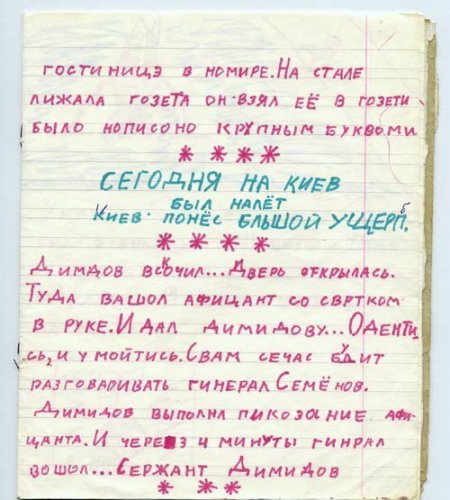 гостиницэ в номире. На стале
лижала гозета он взял её в гозети
было нописоно крупным буквоми
****
Сегодня на Киев
был налёт
Киев понёс бльшой ущерпб.
****
Димдов вскочил... Дверь открылась.
Туда вашол афицант со свртком
в руке. И дал Димидову... Оденти
сь, и умойтись. Свам сечас будит
разговаривать гинерал Семёнов.
Димидов выполнл пикозание афи-
цанта. И через 4 минуты гинрал
вошол... Сержант Димидов
***